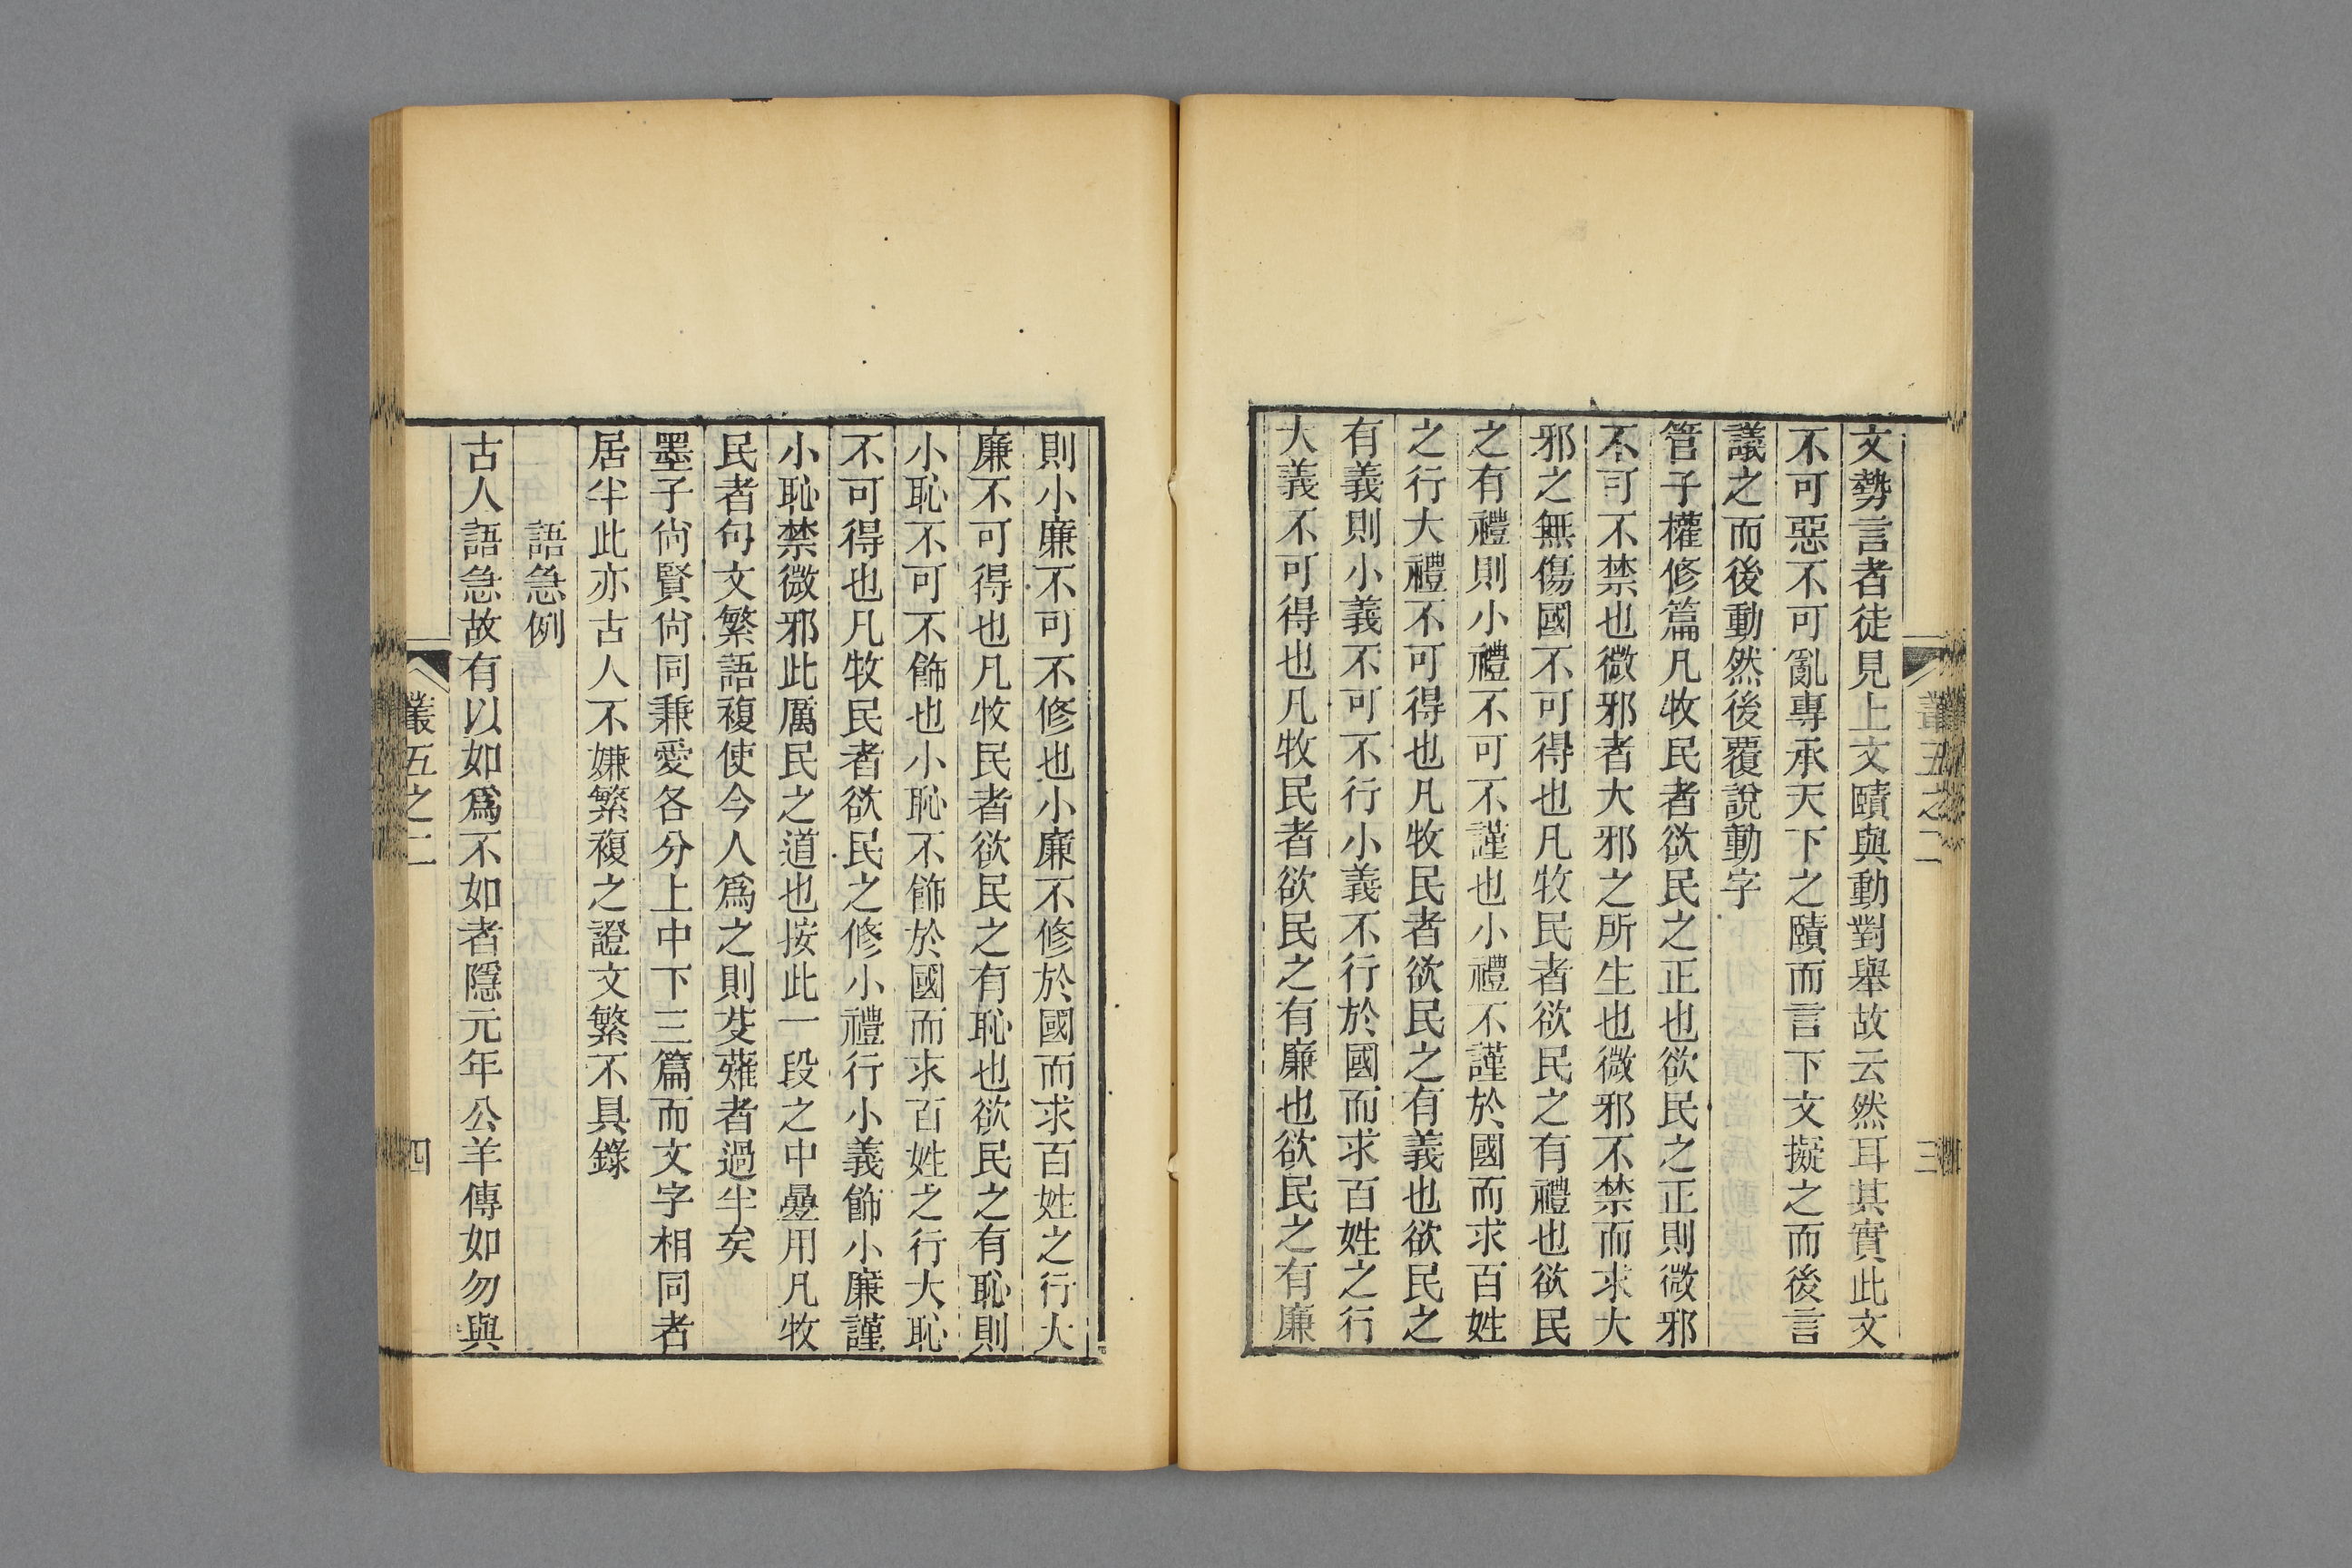 叢五之二
三
文勢言者徒見上文賾與動對舉故云然耳其實此文
不可惡不可亂專承天下之賾而言下文擬之而後言
議之而後動然後覆說動字
管子權修篇凡牧民者欲民之正也欲民之正則微邪
不可不禁也微邪者大邪之所生也微邪不禁而求大
邪之無傷國不可得也凡牧民者欲民之有禮也欲民
之有禮則小禮不可不謹也小禮不謹於國而求百姓
之行大禮不可得也凡牧民者欲民之有義也欲民之
有義則小義不可不行小義不行於國而求百姓之行
大義不可得也凡牧民者欲民之有廉也欲民之有廉
則小廉不可不修也小廉不修於國而求百姓之行大
廉不可得也凡牧民者欲民之有恥也欲民之有恥則
小恥不可不飾也小恥不飾於國而求百姓之行大恥
不可得也凡牧民者欲民之修小禮行小義飾小廉謹
小恥禁微邪此厲民之道也按此一段之中曡用凡牧
民者句文繁語複使今人爲之則芟薙者過半矣
墨子尙賢尙同兼愛各分上中下三篇而文字相同者
居半此亦古人不嫌繁複之證文繁不具錄
語急例
古人語急故有以如爲不如者隱元年公羊傳如勿與
叢五之二
四